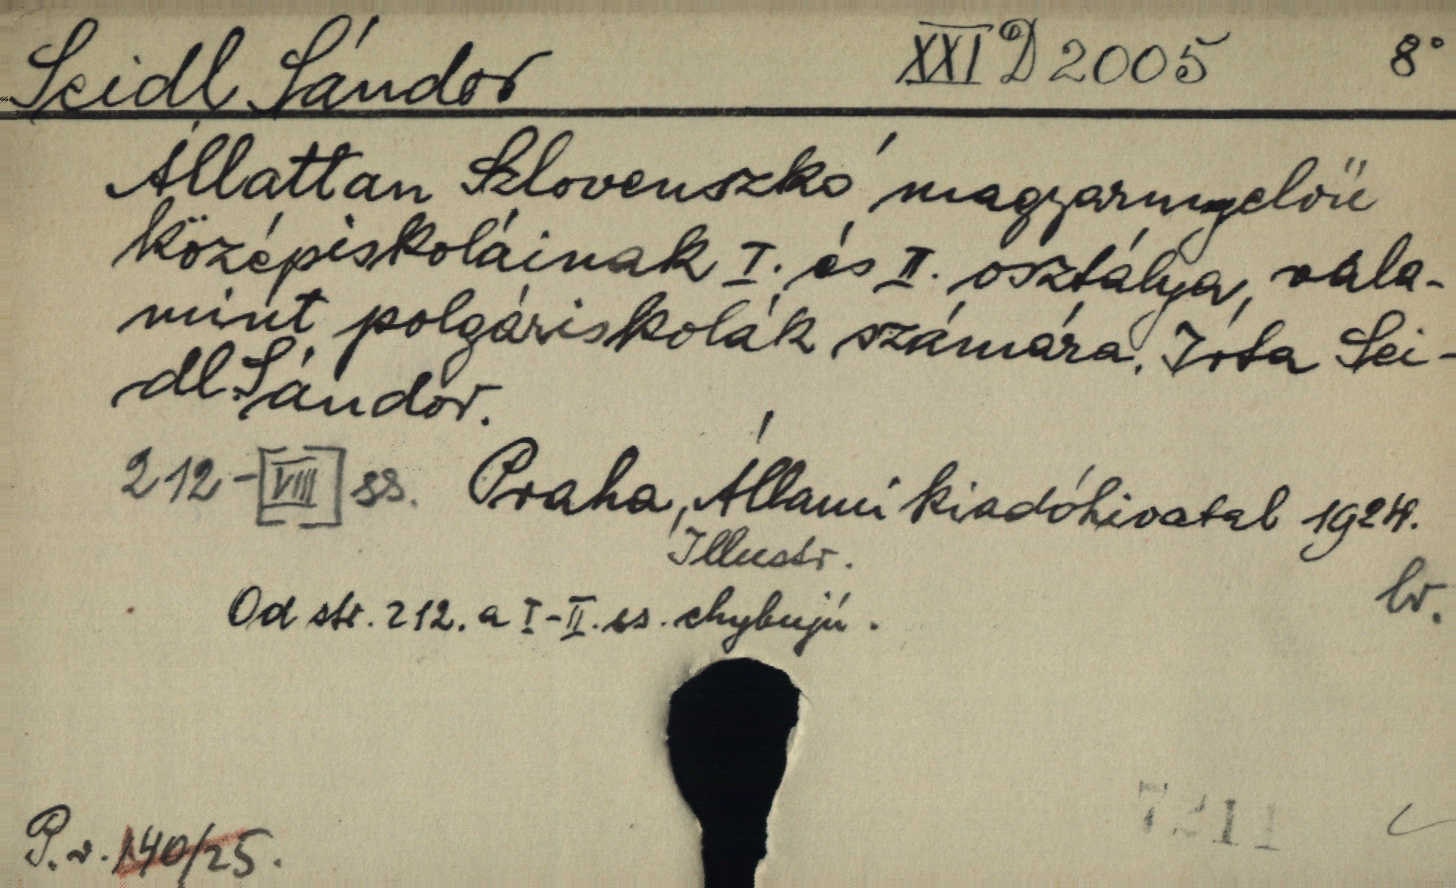 Seidl Sándor XXI D 2005 8°
Állattan Szlovenszkó magyarnyelvü
középiskoláinak I. és II. osztálya, vala-
mint polgáriskolák számára. Írta Sei-
dl Sándor.
212-[VIII] ss. Praha, Állami kiadóhivatal 1924.
Illustr.
br.
Od str. 212. a I-II. ss. chybujú.
P. v. 140/25.